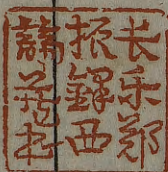 長乐鄭
振鐸西
諦藏書